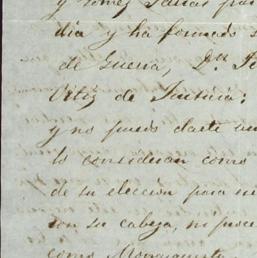 y Gomez Farias par
dia y ha formado s
de Guerra, Dn. Jo
Ortiz de Justicia;
y no puedo darte un
lo consideran como
de su eleccion para mi
con su cabeza, ni proce
como Monarquista